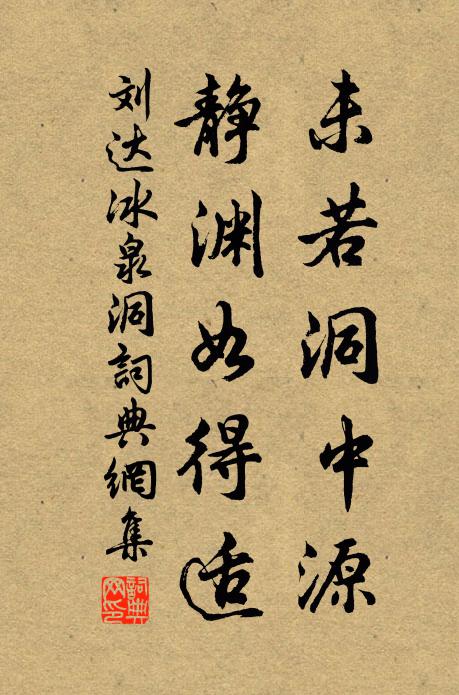 未若洞中源
静渊如得适
刘达冰泉洞詞典網集
詞典网印